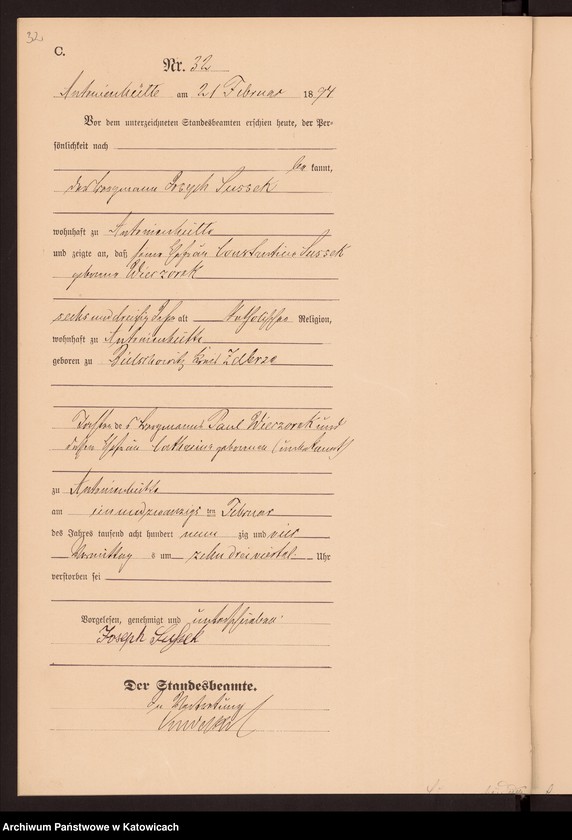 32
C.
Nr. 32
Antonienhütte am 21 Februar 1894
Vor dem unterzeichneten Standesbeamten erschien heute, der Per-
sönlichkeit nach
be kannt,
der Bergmann Joseph Sussek
wohnhaft zu Antonienhütte
und zeigte an, daß seine Ehefrau Constantine Sussek
geborene Wieczorek
sechsunddreißig Jahr alt Katholischer Religion,
wohnhaft zu Antonienhütte
geboren zu Bielschowitz Kreis Zabrze
Tochter des Bergmanns Paul Wieczorek und
dessen Ehefrau Catharina geborenen (unbekannt)
zu Antonienhütte
am einundzwanzigsten Februar
des Jahres tausend acht hundert neun zig und vier
Vormittag s um zehn dreiviertel Uhr
verstorben sei
Vorgelesen, genehmigt und unterschrieben
Joseph Sussek
Der Standesbeamte.
In Vertretung
Archiwum Państwowe w Katowicach